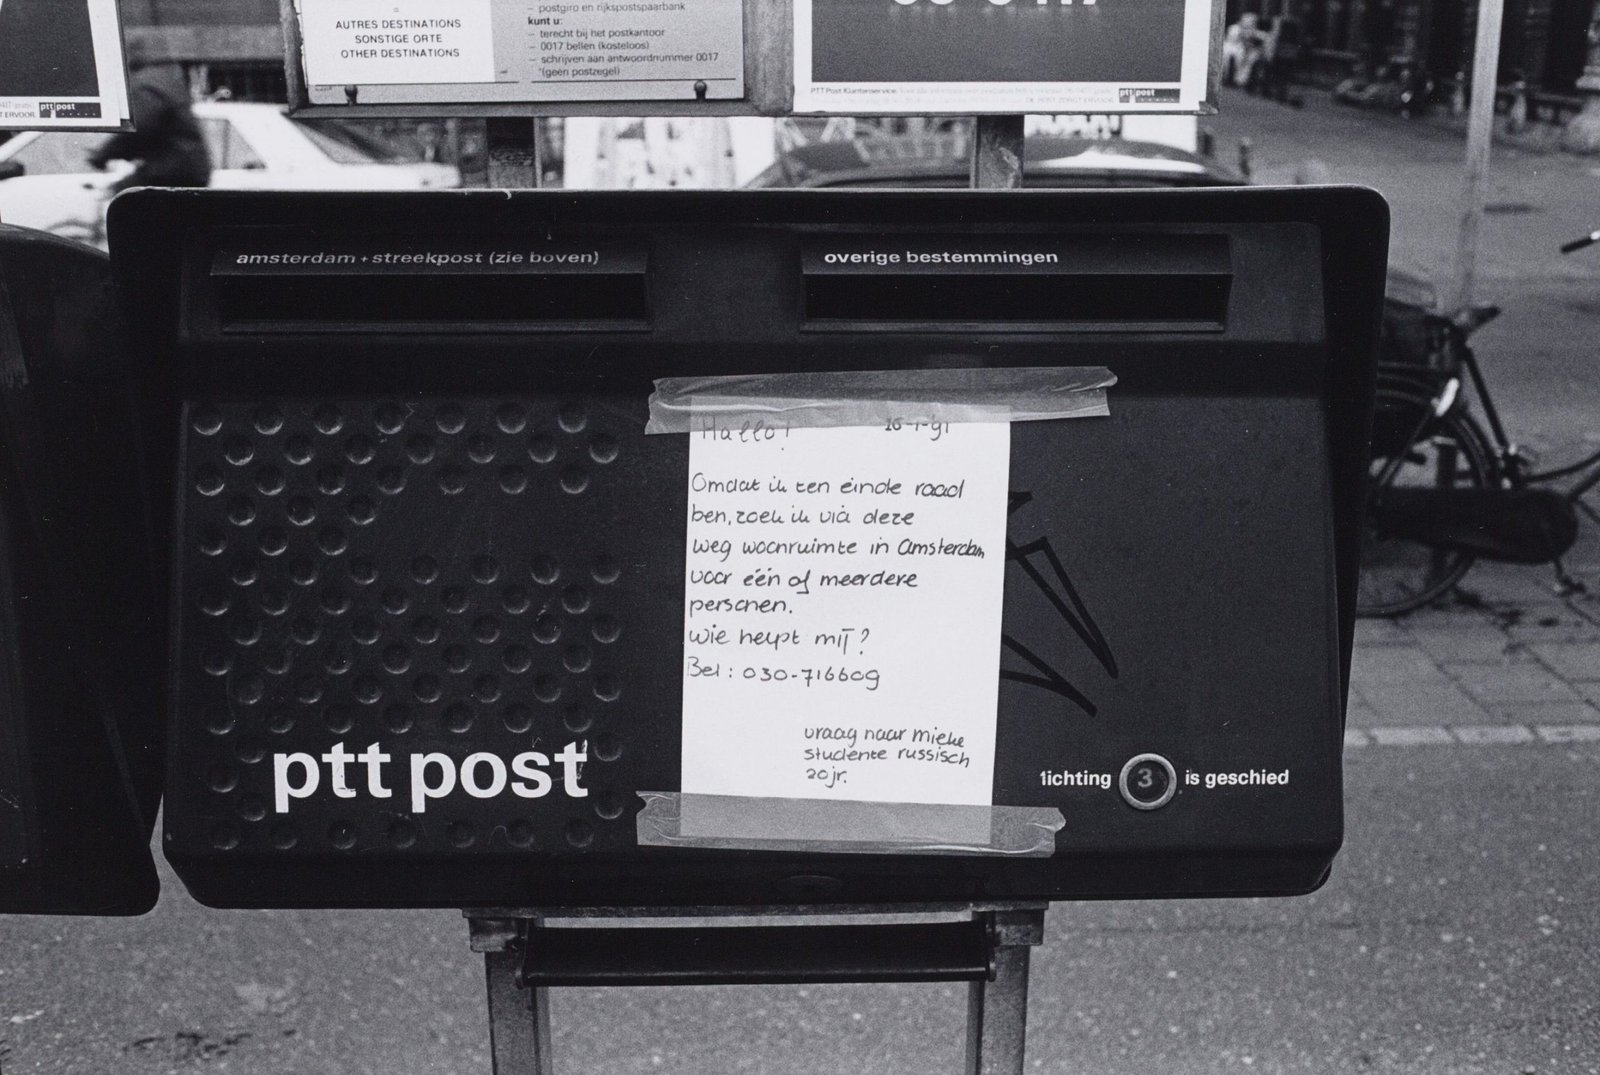 AUTRES DESTINATIONS
SONSTIGE ORTE
OTHER DESTINATIONS
– postgiro en rijkspostspaarbank
kunt u:
– terecht bij het postkantoor
– 0017 bellen (kosteloos)
– schrijven aan antwoordnummer 0017
(geen postzegel)
ptt post
T ERVOOR.
PTT Post Klantenservice.
ptt post
amsterdam + streekpost (zie boven)
overige bestemmingen
Hallo!
Omdat ik ten einde raad
ben, zoek ik via deze
weg woonruimte in Amsterdam
voor één of meerdere
personen.
Wie helpt mij?
Bel: 030-716609
vraag naar Mieke
studente russisch
20 jr.
ptt post
lichting 3 is geschied